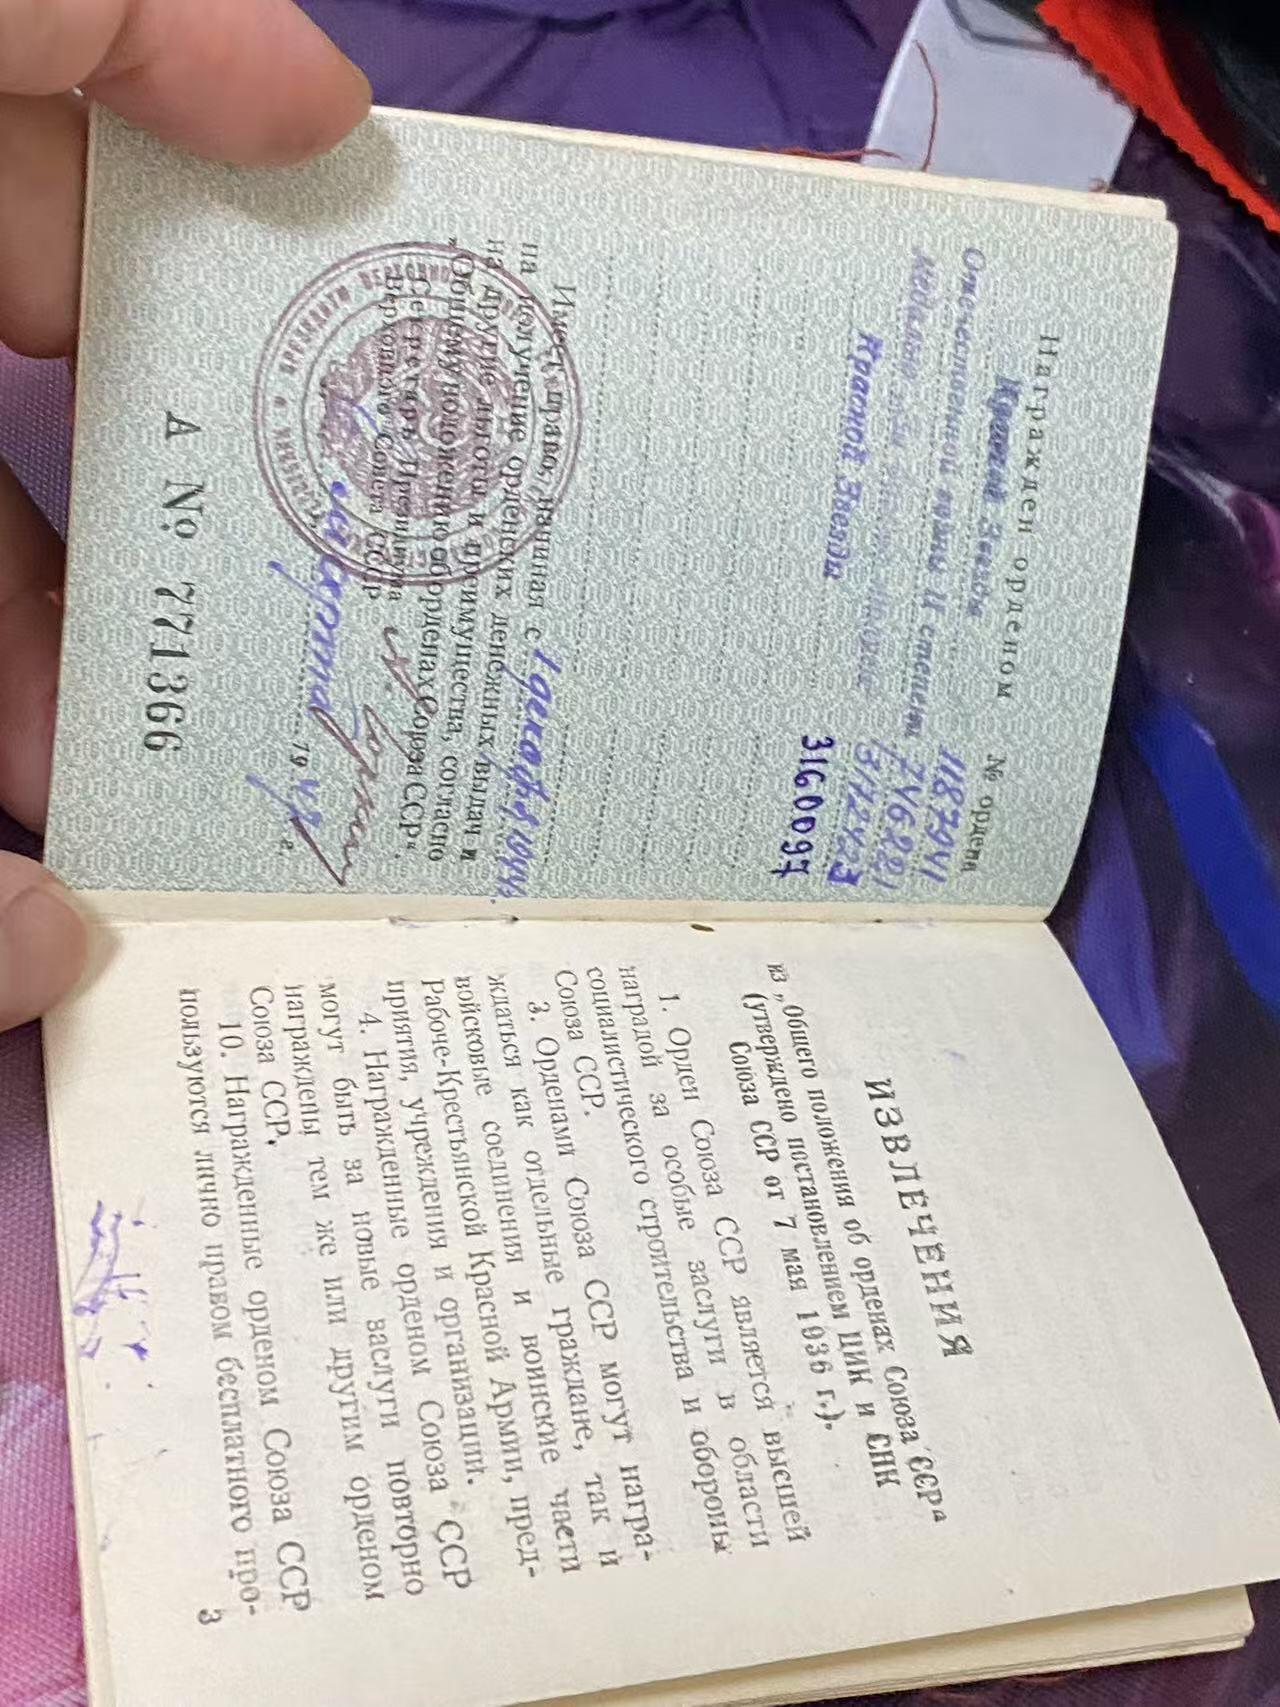 Награжден орденом № ордена
Красной Звезды 1187941
Отечественной войны II степени 746221
Красной Звезды
3160097
Имеет право, начиная с 1 декабря 1944 г.
на получение орденских денежных выдач и
на другие льготы и преимущества, согласно
"Общему положению об орденах Союза ССР".
Секретарь Президиума
Верховного Совета СССР
марта 19 г.
А № 771366
ИЗВЛЕЧЕНИЯ
из „Общего положения об орденах Союза ССР"
(утверждено постановлением ЦИК и СНК
Союза ССР от 7 мая 1936 г.).
1. Орден Союза ССР является высшей
наградой за особые заслуги в области
социалистического строительства и обороны
Союза ССР.
3. Орденами Союза ССР могут награ-
ждаться как отдельные граждане, так и
войсковые соединения и воинские части
Рабоче-Крестьянской Красной Армии, пред-
приятия, учреждения и организации.
4. Награжденные орденом Союза ССР
могут быть за новые заслуги повторно
награждены тем же или другим орденом
Союза ССР.
10. Награжденные орденом Союза ССР
пользуются лично правом бесплатного про-
3